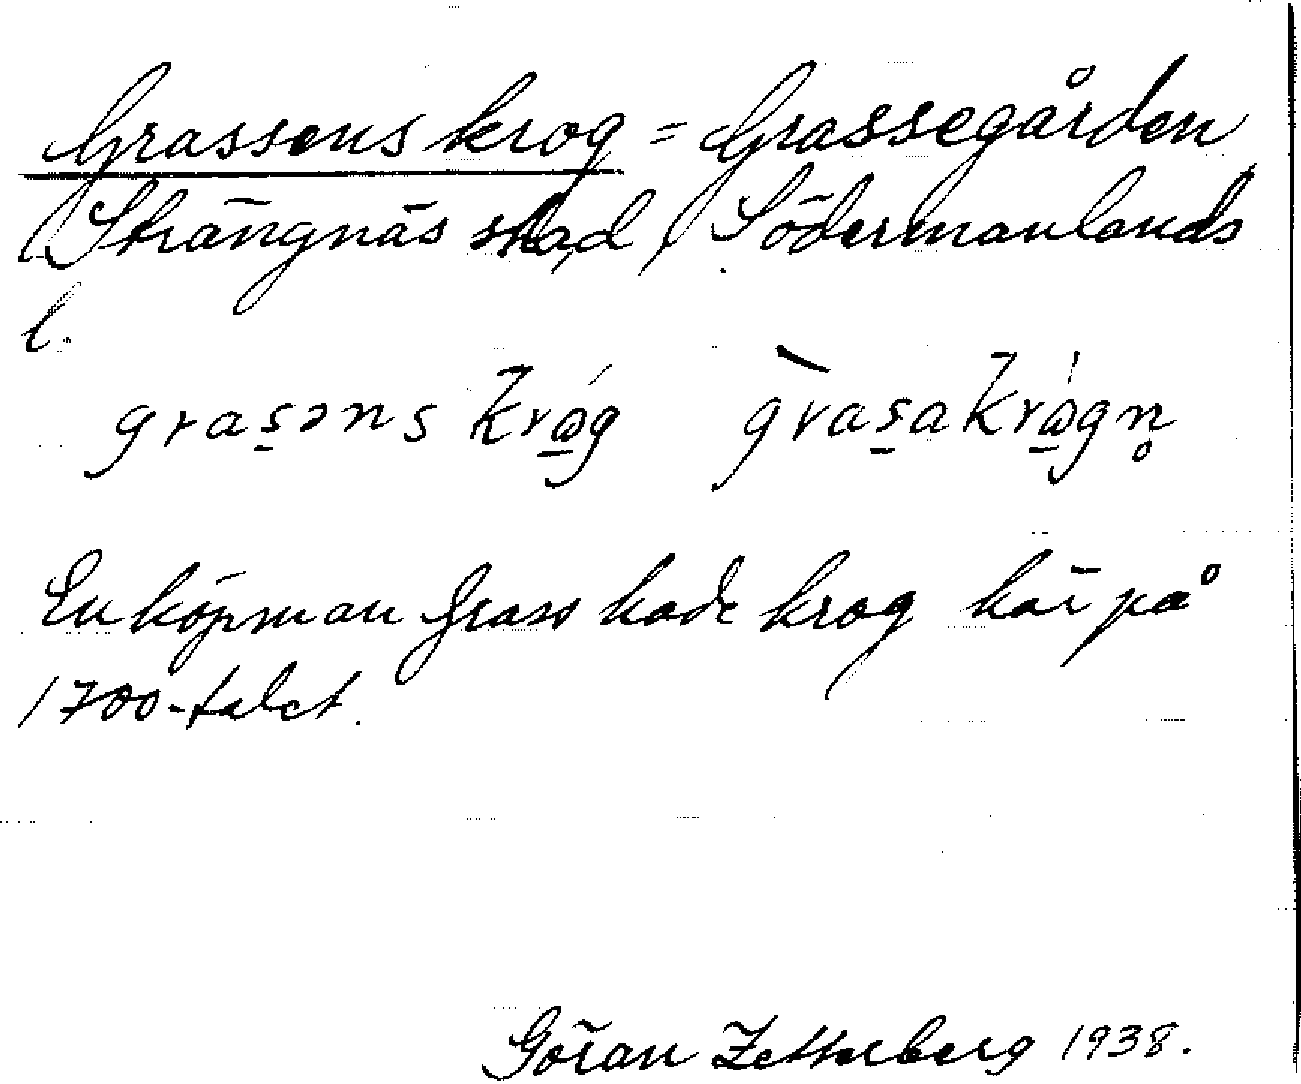 Grassens krog = Grassegården
(Strängnäs stad, Södermanlands
l.
gras̲əns krώ̲g   gràs̲akrώ̲gn̥
En köpman Grass hade krog här på
1700-talet.
Göran Zetterberg 1938.